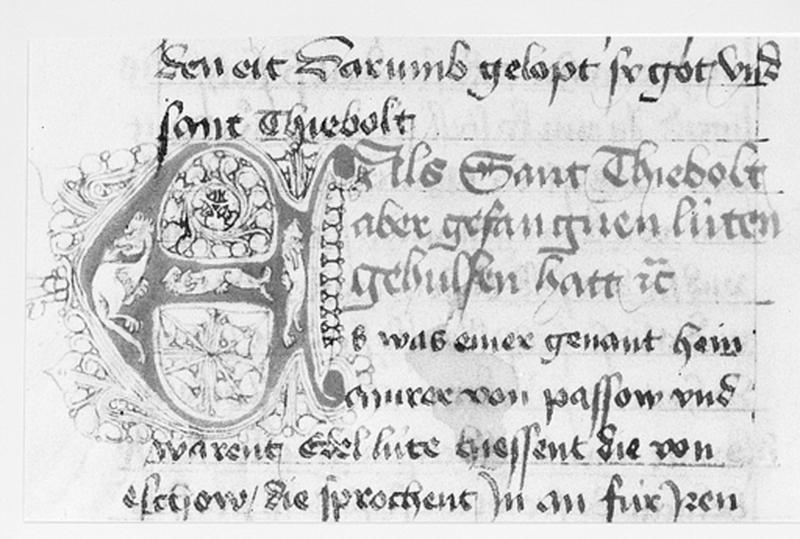 den eit Darumb gelopt sy got vnd
sant Thiebolt
Als Sant Thiebolt
aber gefangnen lüten
gehulfen hatt
Es was einer genant hein
von passow vnd
warent Edel lüte hiessent die von
eschow / die sprochent Jn an für Jren